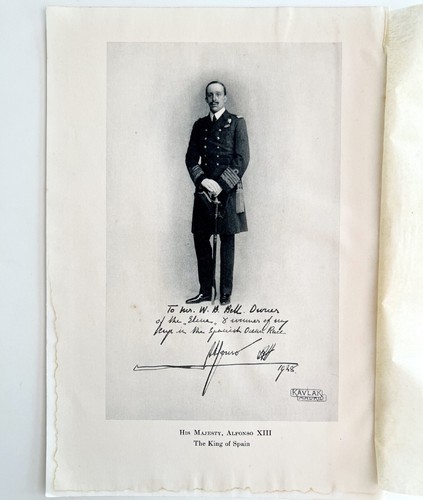 To Mr. W. B. Bell. Owner
of the "Elena", & winner of my
Cup in the Spanish Ocean Race
Alfonso XIII
1928.
KAVLAK
MADRID
HIS MAJESTY, ALFONSO XIII
The King of Spain